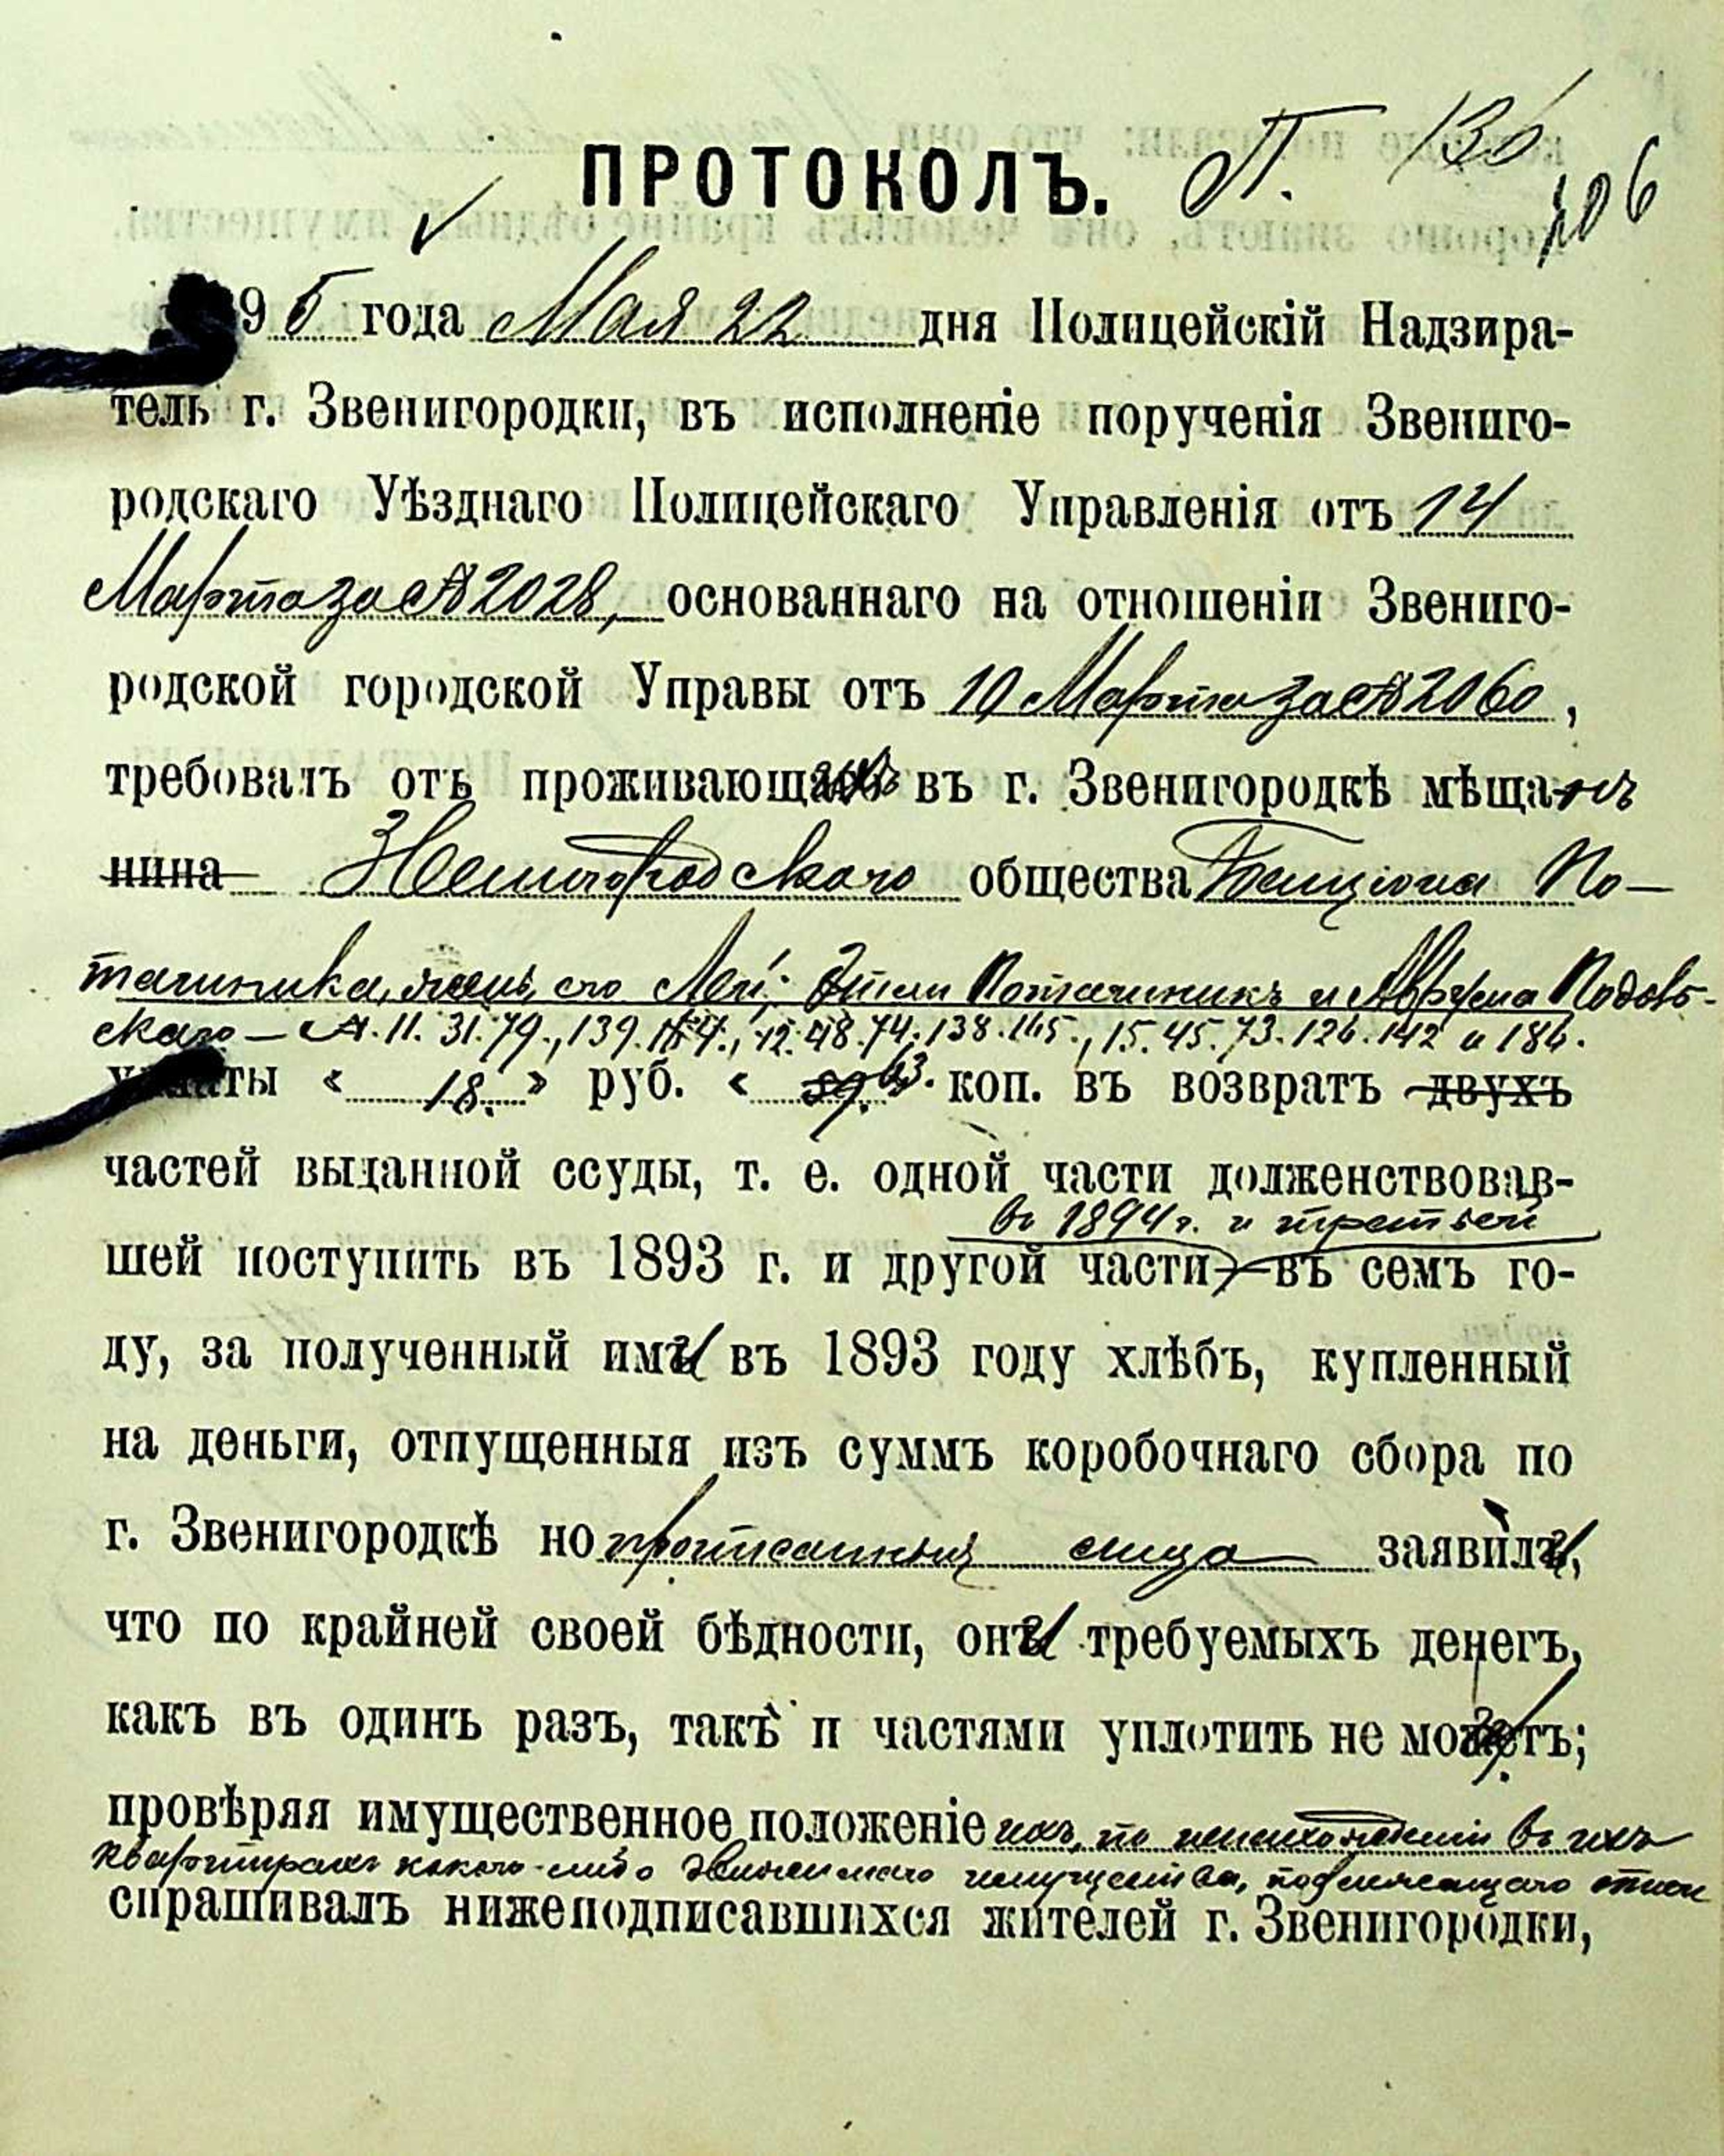 ПРОТОКОЛЪ. П. 136
206
95 года Мая 22 дня Полицейскій Надзира-
тель г. Звенигородки, въ исполненіе порученія Звениго-
родскаго Уѣзднаго Полицейскаго Управленія отъ 14
Марта за № 2028, основаннаго на отношеніи Звениго-
родской городской Управы отъ 10 Марта за № 2060,
требовалъ отъ проживающихъ въ г. Звенигородкѣ мѣщанъ
нина Звенигородскаго общества Бенціона По-
ташника, его Леи, Этли Поташникъ и Аврума Подоль-
скаго — А. 11. 31. 79., 139. 184., 12. 48. 74. 138. 165., 15. 45. 73. 126. 142 и 186.
уплаты « 18. » руб. « 63. коп. въ возвратъ двухъ
частей выданной ссуды, т. е. одной части долженствовав-
въ 1894 г. и третьей
шей поступить въ 1893 г. и другой части въ семъ го-
ду, за полученный ими въ 1893 году хлѣбъ, купленный
на деньги, отпущенныя изъ суммъ коробочнаго сбора по
г. Звенигородкѣ но прописанныя лица заявили,
что по крайней своей бѣдности, они требуемыхъ денегъ,
какъ въ одинъ разъ, такъ и частями уплотить не могутъ;
провѣряя имущественное положеніе ихъ, по ненахожденіи въ ихъ
квартирахъ какого-либо движимаго имущества, подлежащаго описи
спрашивалъ нижеподписавшихся жителей г. Звенигородки,